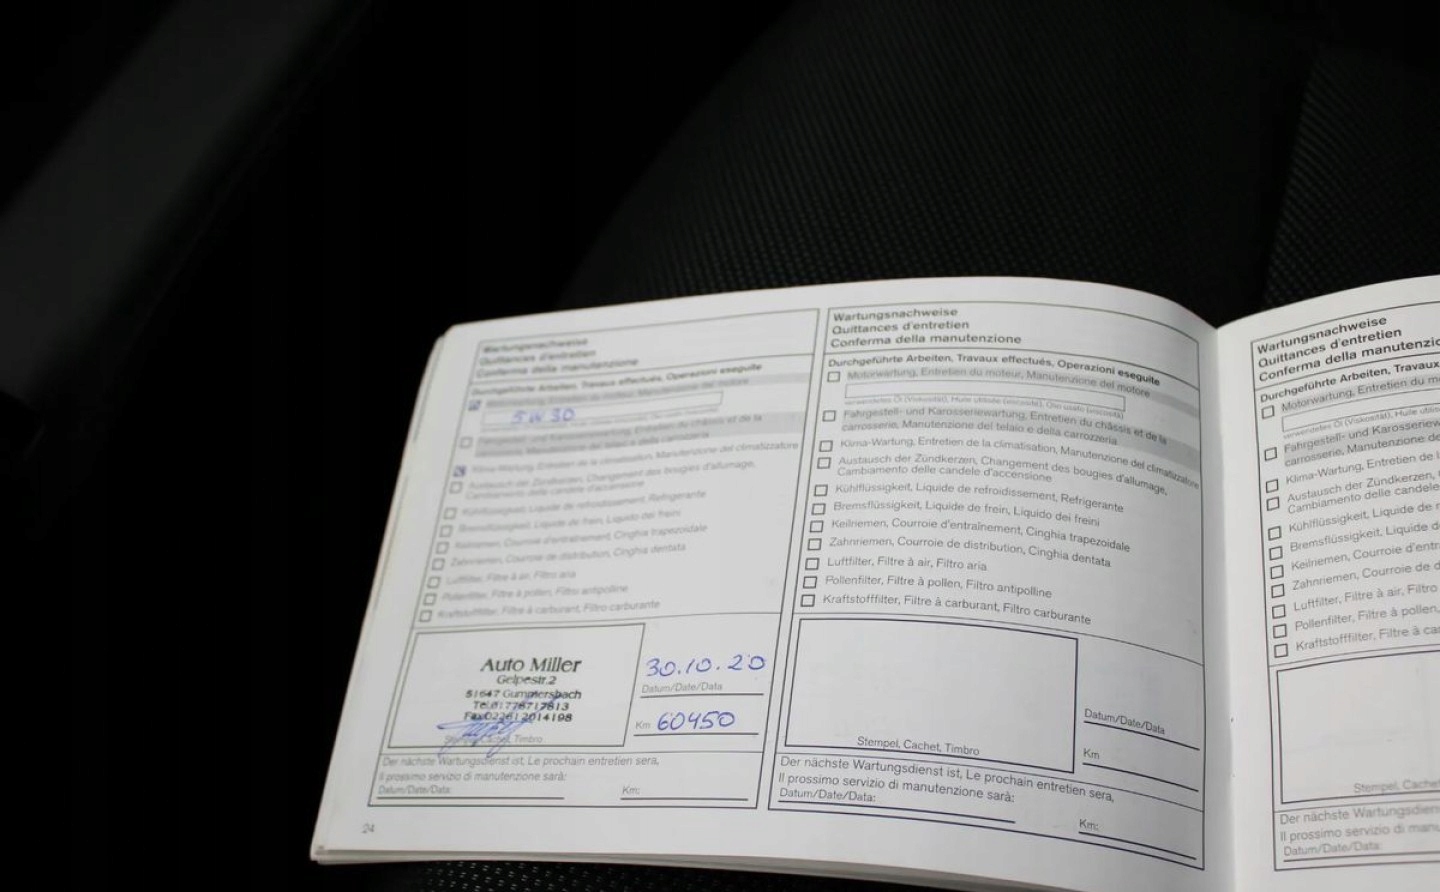 Wartungsnachweise
Quittances d'entretien
Conferma della manutenzione
Durchgeführte Arbeiten, Travaux effectués, Operazioni eseguite
Motorwartung, Entretien du moteur, Manutenzione del motore
5W30
Fahrgestell- und Karosseriewartung, Entretien du châssis et de la
carrosserie, Manutenzione del telaio e della carrozzeria
Klima-Wartung, Entretien de la climatisation, Manutenzione del climatizzatore
Austausch der Zündkerzen, Changement des bougies d'allumage,
Cambiamento delle candele d'accensione
Kühlflüssigkeit, Liquide de refroidissement, Refrigerante
Bremsflüssigkeit, Liquide de frein, Liquido dei freini
Keilriemen, Courroie d'entraînement, Cinghia trapezoidale
Zahnriemen, Courroie de distribution, Cinghia dentata
Luftfilter, Filtre à air, Filtro aria
Pollenfilter, Filtre à pollen, Filtro antipolline
Kraftstofffilter, Filtre à carburant, Filtro carburante
Auto Miller
Gelpestr.2
51647 Gummersbach
Tel.01778717813
Fax022612014198
Stempel, Cachet, Timbro
30.10.20
Datum/Date/Data
Km 60450
Der nächste Wartungsdienst ist, Le prochain entretien sera,
Il prossimo servizio di manutenzione sarà:
Datum/Date/Data:
Km:
24
Wartungsnachweise
Quittances d'entretien
Conferma della manutenzione
Durchgeführte Arbeiten, Travaux effectués, Operazioni eseguite
Motorwartung, Entretien du moteur, Manutenzione del motore
verwendetes Öl (Viskosität), Huile utilisée (viscosité), Olio usato (viscosità)
Fahrgestell- und Karosseriewartung, Entretien du châssis et de la
carrosserie, Manutenzione del telaio e della carrozzeria
Klima-Wartung, Entretien de la climatisation, Manutenzione del climatizzatore
Austausch der Zündkerzen, Changement des bougies d'allumage,
Cambiamento delle candele d'accensione
Kühlflüssigkeit, Liquide de refroidissement, Refrigerante
Bremsflüssigkeit, Liquide de frein, Liquido dei freini
Keilriemen, Courroie d'entraînement, Cinghia trapezoidale
Zahnriemen, Courroie de distribution, Cinghia dentata
Luftfilter, Filtre à air, Filtro aria
Pollenfilter, Filtre à pollen, Filtro antipolline
Kraftstofffilter, Filtre à carburant, Filtro carburante
Stempel, Cachet, Timbro
Datum/Date/Data
Km
Der nächste Wartungsdienst ist, Le prochain entretien sera,
Il prossimo servizio di manutenzione sarà:
Datum/Date/Data:
Km:
Wartungsnachweise
Quittances d'entretien
Conferma della manutenzio
Durchgeführte Arbeiten, Travaux
Motorwartung, Entretien du m
verwendetes Öl (Viskosität), Huile utilis
Fahrgestell- und Karosseriew
carrosserie, Manutenzione de
Klima-Wartung, Entretien de l
Austausch der Zündkerzen,
Cambiamento delle candele
Kühlflüssigkeit, Liquide de r
Bremsflüssigkeit, Liquide d
Keilriemen, Courroie d'entr
Zahnriemen, Courroie de d
Luftfilter, Filtre à air, Filtro
Pollenfilter, Filtre à pollen,
Kraftstofffilter, Filtre à ca
Stempel, Cachet
Der nächste Wartungsdien
Il prossimo servizio di manu
Datum/Date/Data: